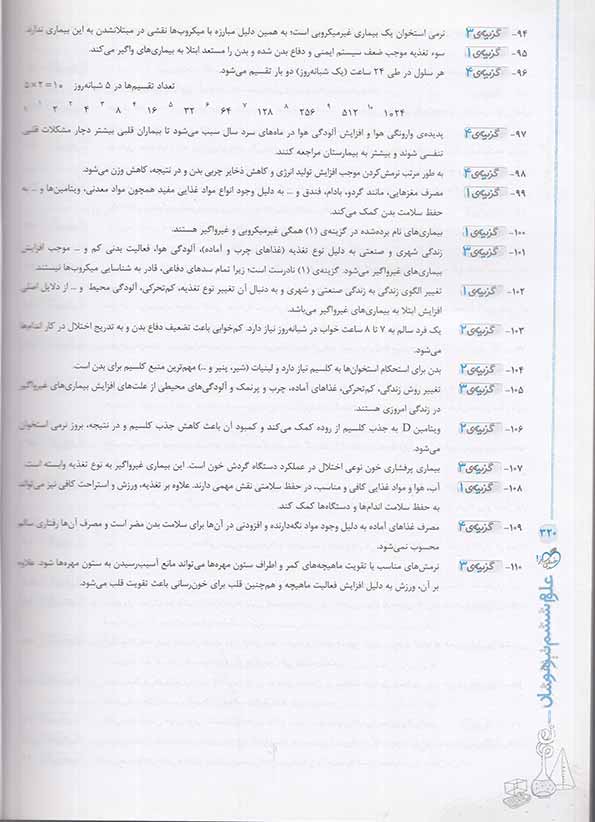 ۹۴- گزینه‌ی ۳ نرمی استخوان یک بیماری غیرمیکروبی است؛ به همین دلیل مبارزه با میکروب‌ها نقشی در مبتلانشدن به این بیماری ندارد.
۹۵- گزینه‌ی ۱ سوء تغذیه موجب ضعف سیستم ایمنی و دفاع بدن شده و بدن را مستعد ابتلا به بیماری‌های واگیر می‌کند.
۹۶- گزینه‌ی ۴ هر سلول در طی ۲۴ ساعت (یک شبانه‌روز) دو بار تقسیم می‌شود.
تعداد تقسیم‌ها در ۵ شبانه‌روز ۵×۲=۱۰
۱ ۲ ۲ ۳ ۴ ۸ ۴ ۱۶ ۵ ۳۲ ۶ ۶۴ ۷ ۱۲۸ ۸ ۲۵۶ ۹ ۵۱۲ ۱۰ ۱۰۲۴
۹۷- گزینه‌ی ۴ پدیده‌ی وارونگی هوا و افزایش آلودگی هوا در ماه‌های سرد سال سبب می‌شود تا بیماران قلبی بیشتر دچار مشکلات قلبی
تنفسی شوند و بیشتر به بیمارستان مراجعه کنند.
۹۸- گزینه‌ی ۴ به طور مرتب نرمش‌کردن موجب افزایش تولید انرژی و کاهش ذخایر چربی بدن و در نتیجه، کاهش وزن می‌شود.
۹۹- گزینه‌ی ۱ مصرف مغزهایی، مانند گردو، بادام، فندق و ... به دلیل وجود انواع مواد غذایی مفید همچون مواد معدنی، ویتامین‌ها و ... به
حفظ سلامت بدن کمک می‌کند.
۱۰۰- گزینه‌ی ۱ بیماری‌های نام برده‌شده در گزینه‌ی (۱) همگی غیرمیکروبی و غیرواگیر هستند.
۱۰۱- گزینه‌ی ۳ زندگی شهری و صنعتی به دلیل نوع تغذیه (غذاهای چرب و آماده)، آلودگی هوا، فعالیت بدنی کم و ... موجب افزایش
بیماری‌های غیرواگیر می‌شود. گزینه‌ی (۱) نادرست است؛ زیرا تمام سدهای دفاعی، قادر به شناسایی میکروب‌ها نیستند.
۱۰۲- گزینه‌ی ۱ تغییر الگوی زندگی به زندگی صنعتی و شهری و به دنبال آن تغییر نوع تغذیه، کم‌تحرکی، آلودگی محیط و ... از دلایل اصلی
افزایش ابتلا به بیماری‌های غیرواگیر می‌باشد.
۱۰۳- گزینه‌ی ۲ یک فرد سالم به ۷ تا ۸ ساعت خواب در شبانه‌روز نیاز دارد. کم‌خوابی باعث تضعیف دفاع بدن و به تدریج اختلال در کار اندام‌ها
می‌شود.
۱۰۴- گزینه‌ی ۲ بدن برای استحکام استخوان‌ها به کلسیم نیاز دارد و لبنیات (شیر، پنیر و ..) مهم‌ترین منبع کلسیم برای بدن است.
۱۰۵- گزینه‌ی ۳ تغییر روش زندگی، کم‌تحرکی، غذاهای آماده، چرب و پرنمک و آلودگی‌های محیطی از علت‌های افزایش بیماری‌های غیرواگیر
در زندگی امروزی هستند.
۱۰۶- گزینه‌ی ۲ ویتامین D به جذب کلسیم از روده کمک می‌کند و کمبود آن باعث کاهش جذب کلسیم و در نتیجه، بروز نرمی استخوان
می‌شود.
۱۰۷- گزینه‌ی ۳ بیماری پرفشاری خون نوعی اختلال در عملکرد دستگاه گردش خون است. این بیماری غیرواگیر به نوع تغذیه وابسته است.
۱۰۸- گزینه‌ی ۱ آب، هوا و مواد غذایی کافی و مناسب، در حفظ سلامتی نقش مهمی دارند. علاوه بر تغذیه، ورزش و استراحت کافی نیز می‌تواند
به حفظ سلامت اندام‌ها و دستگاه‌ها کمک کند.
۱۰۹- گزینه‌ی ۴ مصرف غذاهای آماده به دلیل وجود مواد نگه‌دارنده و افزودنی در آن‌ها برای سلامت بدن مضر است و مصرف آن‌ها رفتاری سالم
محسوب نمی‌شود.
۱۱۰- گزینه‌ی ۳ نرمش‌های مناسب با تقویت ماهیچه‌های کمر و اطراف ستون مهره‌ها می‌تواند مانع آسیب‌رسیدن به ستون مهره‌ها شود. علاوه
بر آن، ورزش به دلیل افزایش فعالیت ماهیچه و هم‌چنین قلب برای خون‌رسانی باعث تقویت قلب می‌شود.
۳۲۰
علوم ششم تیزهوشان